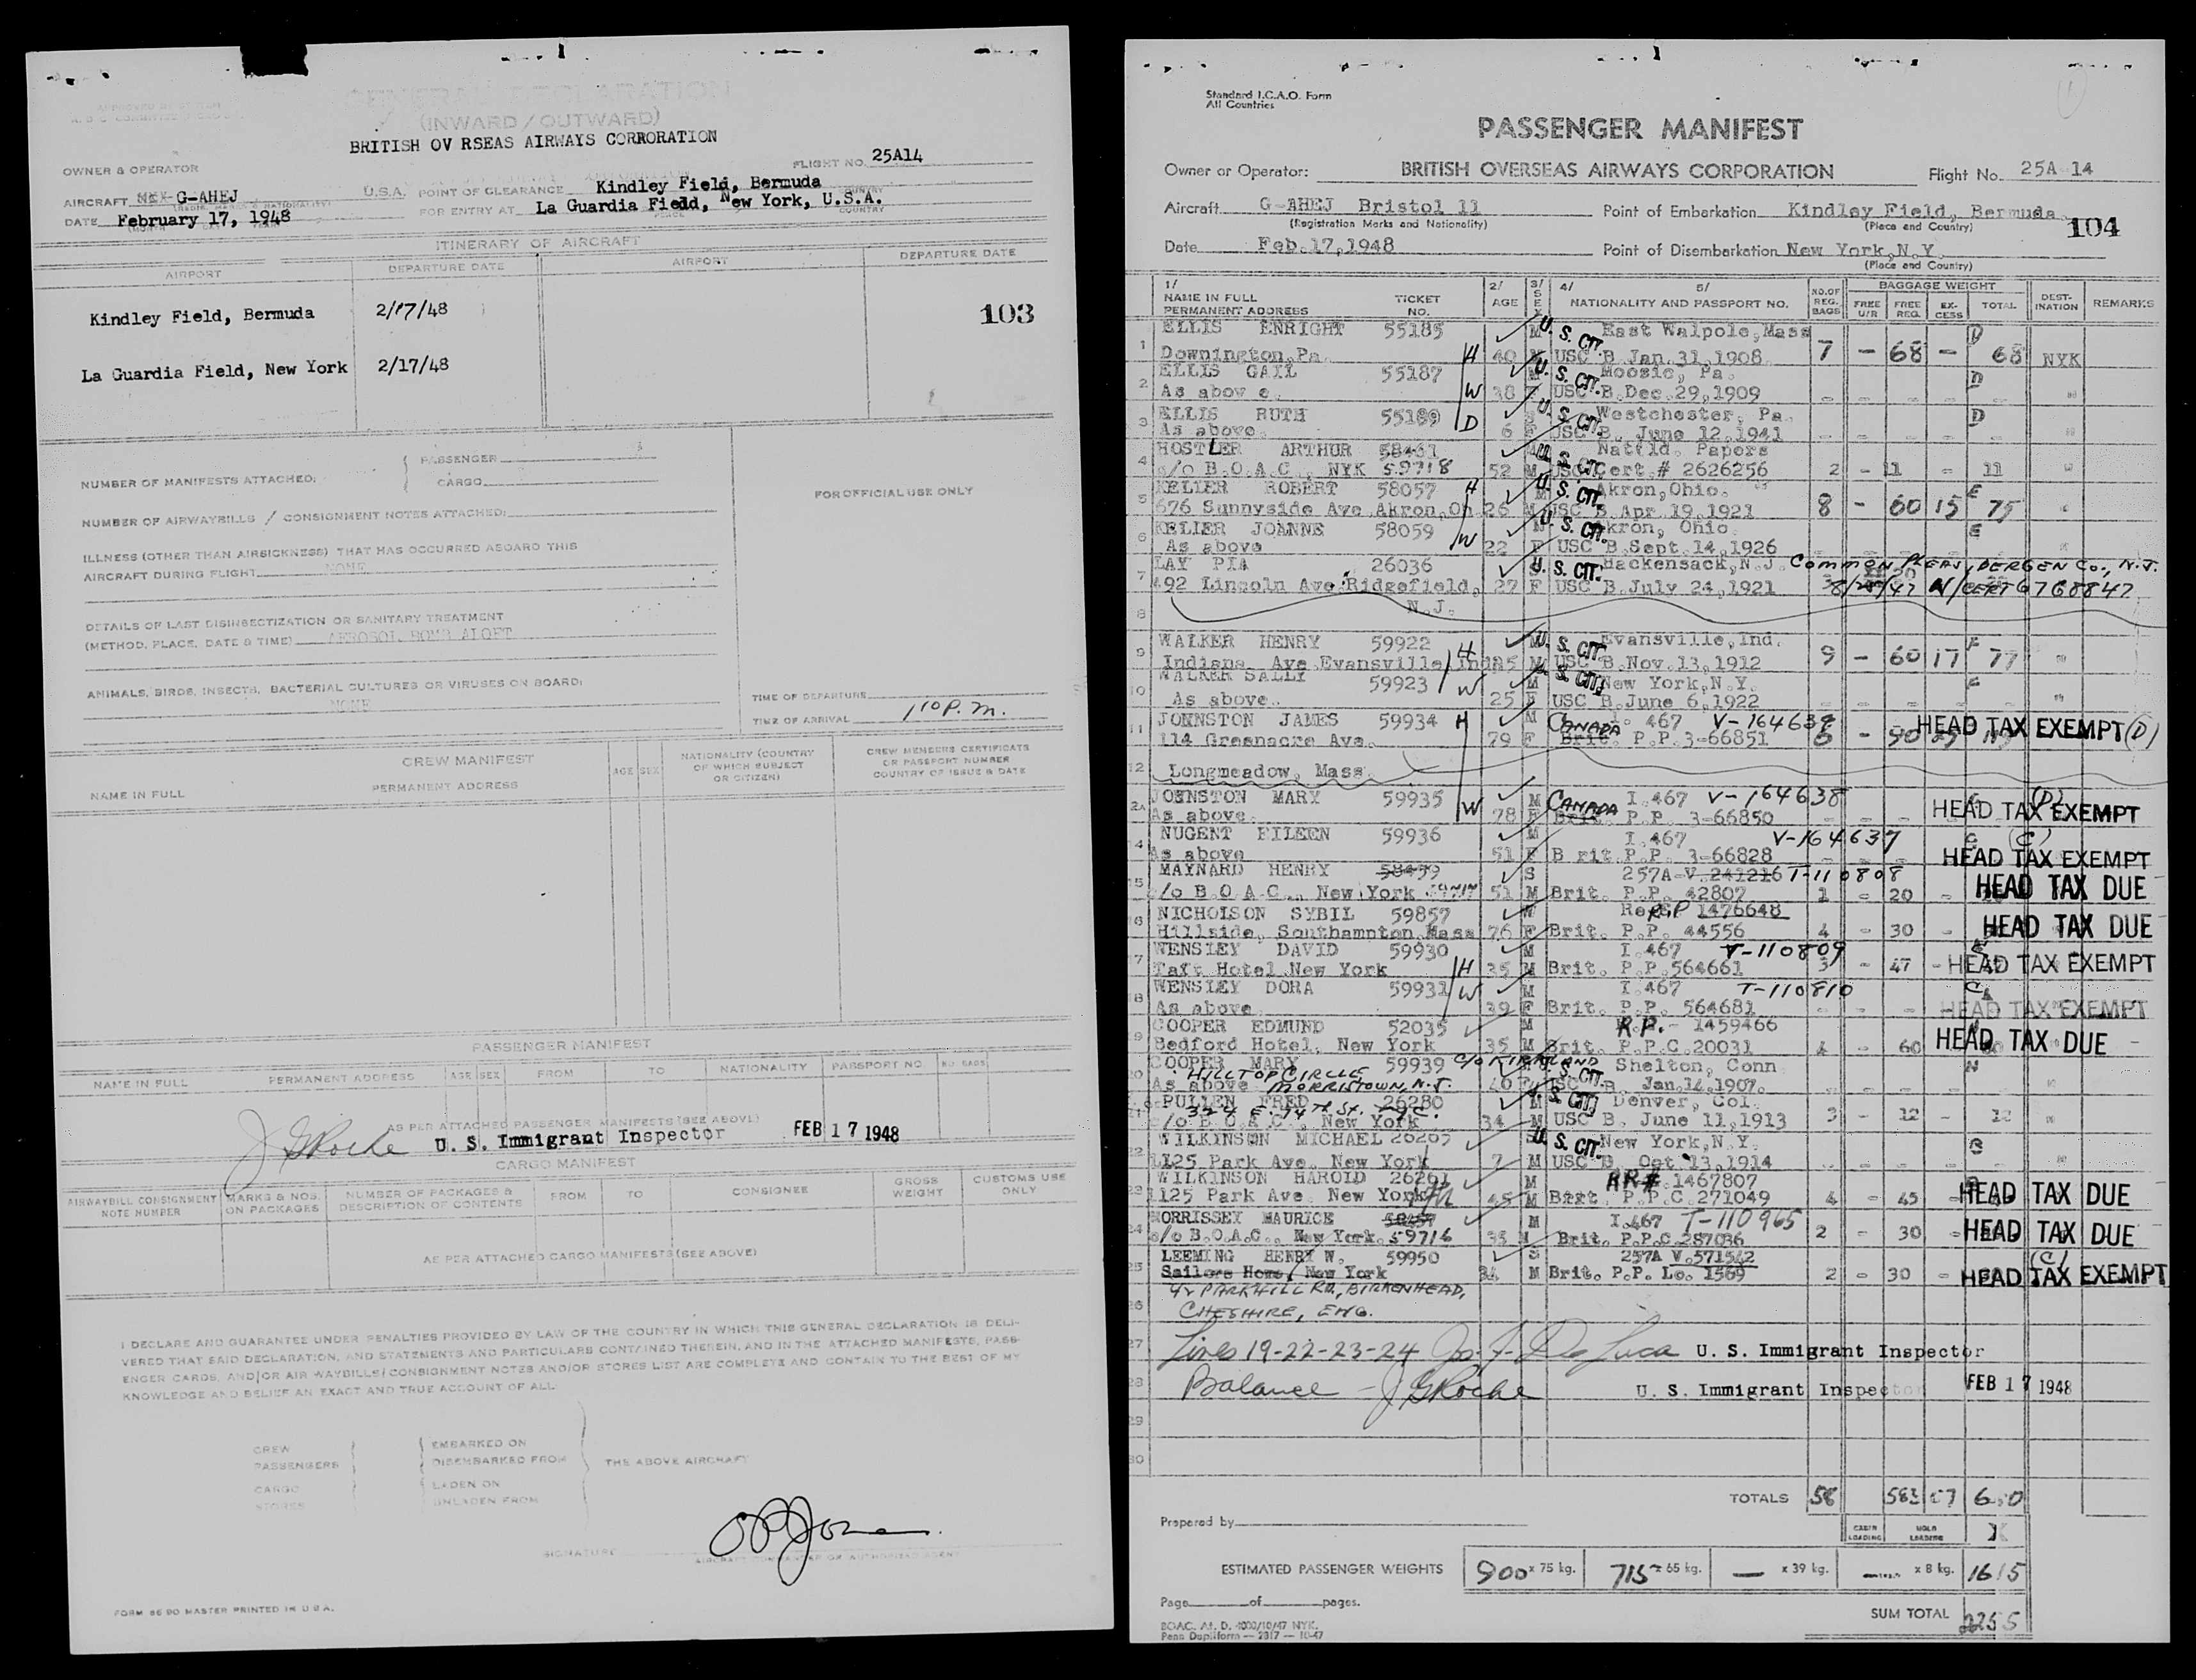 GENERAL DECLARATION
(INWARD / OUTWARD)
BRITISH OV RSEAS AIRWAYS CORRORATION
OWNER & OPERATOR
FLIGHT NO. 25A14
AIRCRAFT G-AHEJ U.S.A. POINT OF CLEARANCE Kindley Field, Bermuda
DATE February 17, 1948 FOR ENTRY AT La Guardia Field, New York, U.S.A.
ITINERARY OF AIRCRAFT
AIRPORT DEPARTURE DATE AIRPORT DEPARTURE DATE
Kindley Field, Bermuda 2/17/48 103
La Guardia Field, New York 2/17/48
NUMBER OF MANIFESTS ATTACHED: PASSENGER
CARGO
FOR OFFICIAL USE ONLY
NUMBER OF AIRWAYBILLS / CONSIGNMENT NOTES ATTACHED:
ILLNESS (OTHER THAN AIRSICKNESS) THAT HAS OCCURRED ABOARD THIS
AIRCRAFT DURING FLIGHT NONE
DETAILS OF LAST DISINSECTIZATION OR SANITARY TREATMENT
(METHOD, PLACE, DATE & TIME) AEROSOL BOMB ALOFT
ANIMALS, BIRDS, INSECTS, BACTERIAL CULTURES OR VIRUSES ON BOARD:
NONE
TIME OF DEPARTURE
TIME OF ARRIVAL 1 10 P.M.
CREW MANIFEST
NAME IN FULL PERMANENT ADDRESS AGE SEX NATIONALITY (COUNTRY OF WHICH SUBJECT OR CITIZEN) CREW MEMBERS CERTIFICATE OR PASSPORT NUMBER COUNTRY OF ISSUE & DATE
PASSENGER MANIFEST
NAME IN FULL PERMANENT ADDRESS AGE SEX FROM TO NATIONALITY PASSPORT NO. NO. BAGS
AS PER ATTACHED PASSENGER MANIFESTS (SEE ABOVE)
J G Roche U. S. Immigrant Inspector FEB 17 1948
CARGO MANIFEST
AIRWAYBILL CONSIGNMENT NOTE NUMBER MARKS & NOS. ON PACKAGES NUMBER OF PACKAGES & DESCRIPTION OF CONTENTS FROM TO CONSIGNEE GROSS WEIGHT CUSTOMS USE ONLY
AS PER ATTACHED CARGO MANIFESTS (SEE ABOVE)
I DECLARE AND GUARANTEE UNDER PENALTIES PROVIDED BY LAW OF THE COUNTRY IN WHICH THIS GENERAL DECLARATION IS DELI-
VERED THAT SAID DECLARATION, AND STATEMENTS AND PARTICULARS CONTAINED THEREIN, AND IN THE ATTACHED MANIFESTS, PASS-
ENGER CARDS, AND/OR AIR WAYBILLS/CONSIGNMENT NOTES AND/OR STORES LIST ARE COMPLETE AND CONTAIN TO THE BEST OF MY
KNOWLEDGE AND BELIEF AN EXACT AND TRUE ACCOUNT OF ALL
CREW EMBARKED ON
PASSENGERS DISEMBARKED FROM THE ABOVE AIRCRAFT
CARGO LADEN ON
STORES UNLADEN FROM
SIGNATURE
AIRCRAFT COMMANDER OR AUTHORIZED AGENT
FORM 8690 MASTER PRINTED IN U.S.A.
Standard I.C.A.O. Form
All Countries
PASSENGER MANIFEST
Owner or Operator: BRITISH OVERSEAS AIRWAYS CORPORATION Flight No. 25A 14
Aircraft G-AHEJ Bristol 11 Point of Embarkation Kindley Field, Bermuda
(Registration Marks and Nationality) (Place and Country) 104
Date Feb.17,1948 Point of Disembarkation New York,N.Y.
(Place and Country)
1/ NAME IN FULL PERMANENT ADDRESS TICKET NO. 2/ AGE 3/ SEX 4/ 5/ NATIONALITY AND PASSPORT NO. NO.OF REG. BAGS BAGGAGE WEIGHT FREE U/R FREE REG. EX-CESS TOTAL DEST-INATION REMARKS
ELLIS ENRIGHT 55185 M U. S. CIT. East Walpole,Mass D
1 Downington,Pa. H 40 M USC B Jan.31,1908 7 - 68 - 68 NYK
ELLIS GAIL 55187 M U. S. CIT. Moosic, Pa. D
2 As abov e. W 38 F USC B.Dec.29,1909
ELLIS RUTH 55189 S U. S. CIT. Westchester, Pa. D
3 As above. D 6 F USC B. June 12,1941
HOSTLER ARTHUR 58461 M U. S. CIT. Natfld. Papers
4 c/o B.O.A.C., NYK 59718 52 M USC Cert.# 2626256 2 - 11 - 11
KELIER ROBERT 58057 H M U. S. CIT. Akron,Ohio. E
5 676 Sunnyside Ave Akron,Oh 26 M USC B Apr.19,1921 8 - 60 15 75
KELIER JOANNE 58059 M U. S. CIT. Akron, Ohio. E
6 As above W 22 F USC B.Sept.14,1926
LAY PIA 26036 S U. S. CIT. Hackensack,N.J. COMMON PLEAS, BERGEN CO., N.J.
7 492 Lincoln Ave.Ridgefield, 27 F USC B.July 24,1921 8/25/47 N/CERT 6768847
8 N.J.
WALKER HENRY 59922 H M U. S. CIT. Evansville,Ind. F
9 Indiana Ave Evansville Ind 35 M USC B.Nov.13,1912 9 - 60 17 77
WALKER SALLY 59923 W M U. S. CIT. New York,N.Y.
10 As above. 25 F USC B.June 6,1922
JOHNSTON JAMES 59934 H M CANADA I. 467 V-164639 HEAD TAX EXEMPT (D)
11 114 Greenacre Ave. 79 F Brit. P.P.3-66851
12 Longmeadow, Mass.
JOHNSTON MARY 59935 W M CANADA I.467 V-164638 (D)
As above. 78 F Brit. P.P. 3-66850 HEAD TAX EXEMPT
NUGENT EILEEN 59936 M I.467 V-164637 (C)
As above 51 F B rit.P.P. 3-66828 HEAD TAX EXEMPT
MAYNARD HENRY 58459 S 257A-V.241216 T-110808 HEAD TAX DUE
15 c/o B.O.A.C., New York 59717 51 M Brit. P.P. 42807 1 - 20 -
NICHOLSON SYBIL 59857 W RP 1476648
16 Hillside, Southampton,Mass 76 F Brit. P.P. 44556 4 - 30 - HEAD TAX DUE
WENSLEY DAVID 59930 M I.467 T-110809
17 Taft Hotel New York H 35 M Brit. P.P.564661 3 - 47 - HEAD TAX EXEMPT
WENSLEY DORA 59931 W M I.467 T-110810
18 As above 39 F Brit. P.P. 564681 HEAD TAX EXEMPT
COOPER EDMUND 52035 M R.P.- 1459466
19 Bedford Hotel, New York 35 M Brit. P.P.C.20031 4 - 60 HEAD TAX DUE
COOPER MARY 59939 C/O KIRKLAND U. S. CIT. Shelton, Conn
HILLTOP CIRCLE
20 As above MORRISTOWN, N.J. 40 F USC B. Jan.14,1907.
PULLEN FRED 26280 M U. S. CIT. Denver, Col.
324 E. 74TH ST. NYC.
21 c/o B.O.A.C., New York 34 M USC B. June 11,1913 3 - 12 - 12
WILKINSON MICHAEL 26265 S U. S. CIT. New York,N.Y. B
22 1125 Park Ave. New York 7 M USC B. Oct.13,1914
WILKINSON HAROLD 26261 M RR# 1467807
23 1125 Park Ave New York 45 M Brit. P.P.C 271049 4 - 45 HEAD TAX DUE
MORRISSEY MAURICE 58457 M I.467 T-110965
24 c/o B.O.A.C., New York. 59716 35 M Brit. P.P.C.287036 2 - 30 HEAD TAX DUE
LEEMING HENRY W. 59950 S 257A V.571542 (C)
25 Sailors Home, New York 34 M Brit. P.P. Lo. 1569 2 - 30 - HEAD TAX EXEMPT
42 PARKHILL RD., BIRKENHEAD,
26 CHESHIRE, ENG.
27 Lines 19-22-23-24 Jos. A. De Luca U. S. Immigrant Inspector
28 Balance - J G Roche U. S. Immigrant Inspector FEB 17 1948
29
30
TOTALS 58 583 57 640
Prepared by
CABIN LOADING HOLD LOADING
ESTIMATED PASSENGER WEIGHTS 900 x 75 kg. 715 x 65 kg. — x 39 kg. — x 8 kg. 1615
Page of pages.
SUM TOTAL 2255
BOAC. Af. D. 4000/10/47 NYK.
Penn Dupliform — 2317 — 10-47